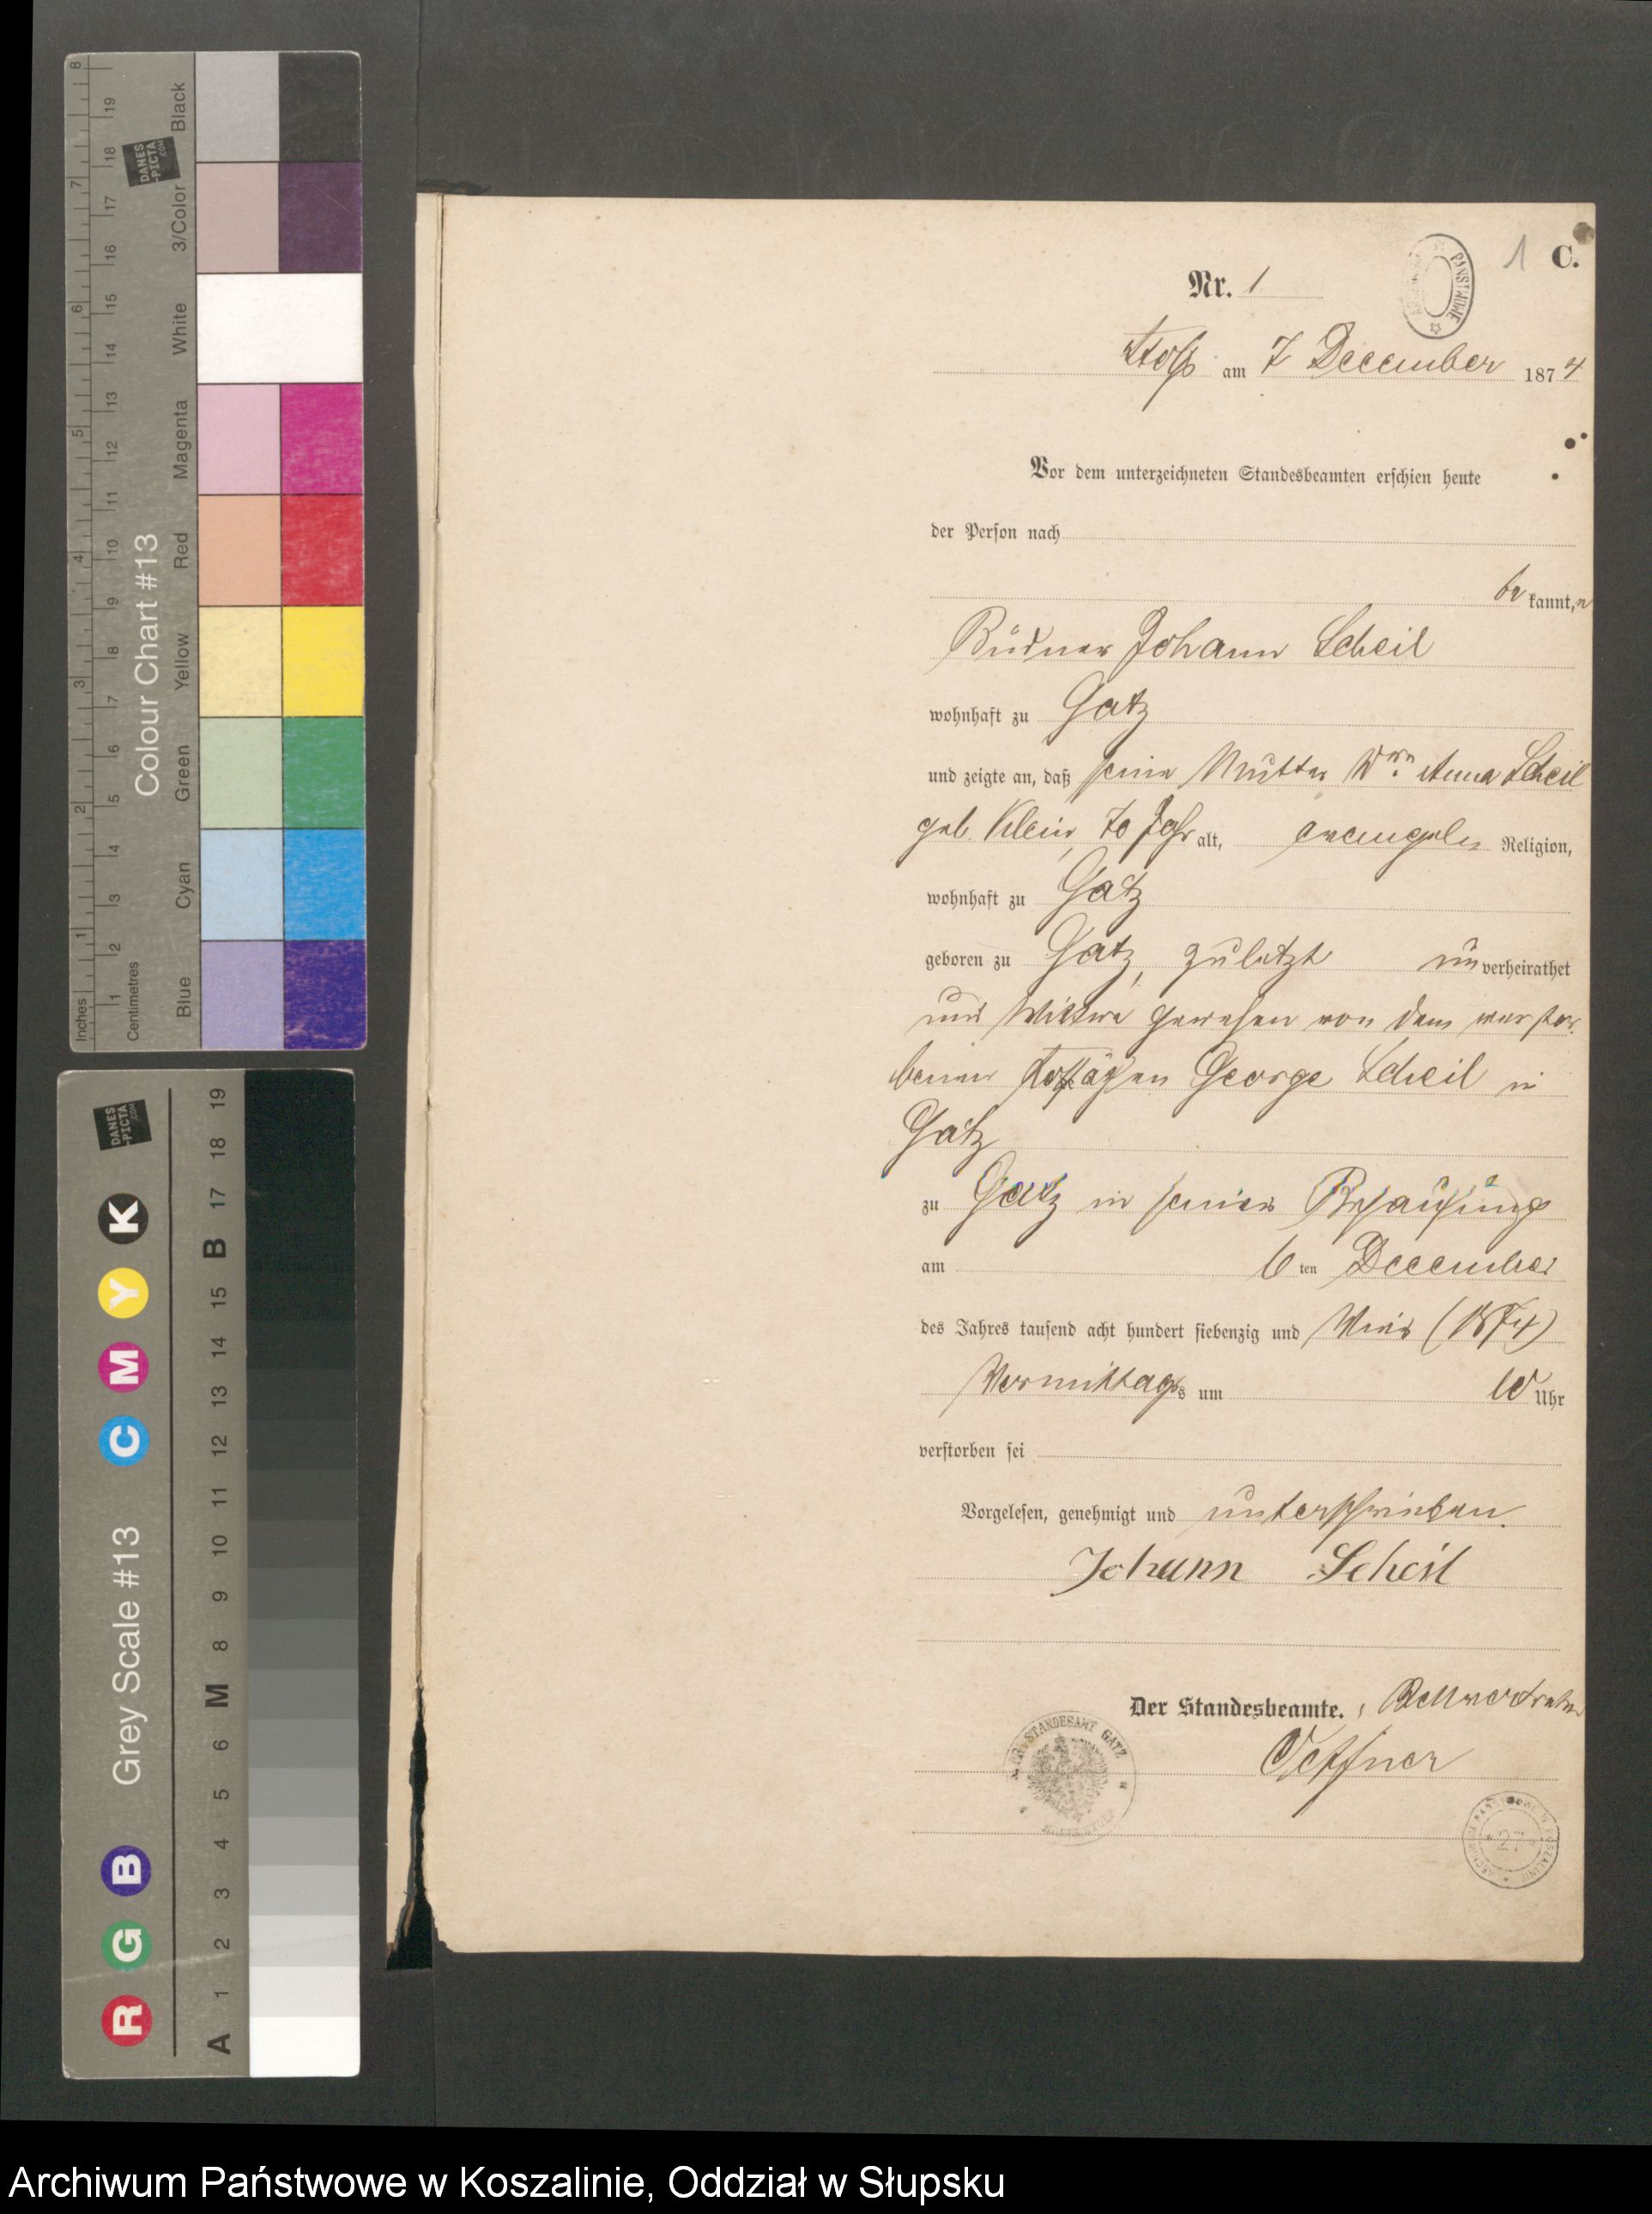 Inches 1 2 3 4 5 6 7 8
Centimetres 1 2 3 4 5 6 7 8 9 10 11 12 13 14 15 16 17 18 19
Colour Chart #13
Blue Cyan Green Yellow Red Magenta White 3/Color Black
DANES
-PICTA
.COM
Grey Scale #13
R G B C M Y K
A 1 2 3 4 5 6 M 8 9 10 11 12 13 14 15 B 17 18 19
DANES
-PICTA
.COM
1 C.
Nr. 1
PAŃSTWOWE
Stolp am 7 December 1874
Vor dem unterzeichneten Standesbeamten erschien heute
der Person nach
be kannt,
Büdner Johann Scheil
wohnhaft zu Gatz
und zeigte an, daß seine Mutter Wwe Anna Scheil
geb. Klein, 70 Jahr alt, evangelis Religion,
wohnhaft zu Gatz
geboren zu Gatz, zuletzt unverheirathet
und Wittwe gewesen von dem verstor-
benen George Scheil in
Gatz
zu Gatz in seiner Behausung
am 6ten December
des Jahres tausend acht hundert siebenzig und Vier (1874)
Vormittags um 10 Uhr
verstorben sei
Vorgelesen, genehmigt und unterschrieben.
Johann Scheil
Der Standesbeamte.
PR. STANDESAMT GATZ
Archiwum Państwowe w Koszalinie, Oddział w Słupsku